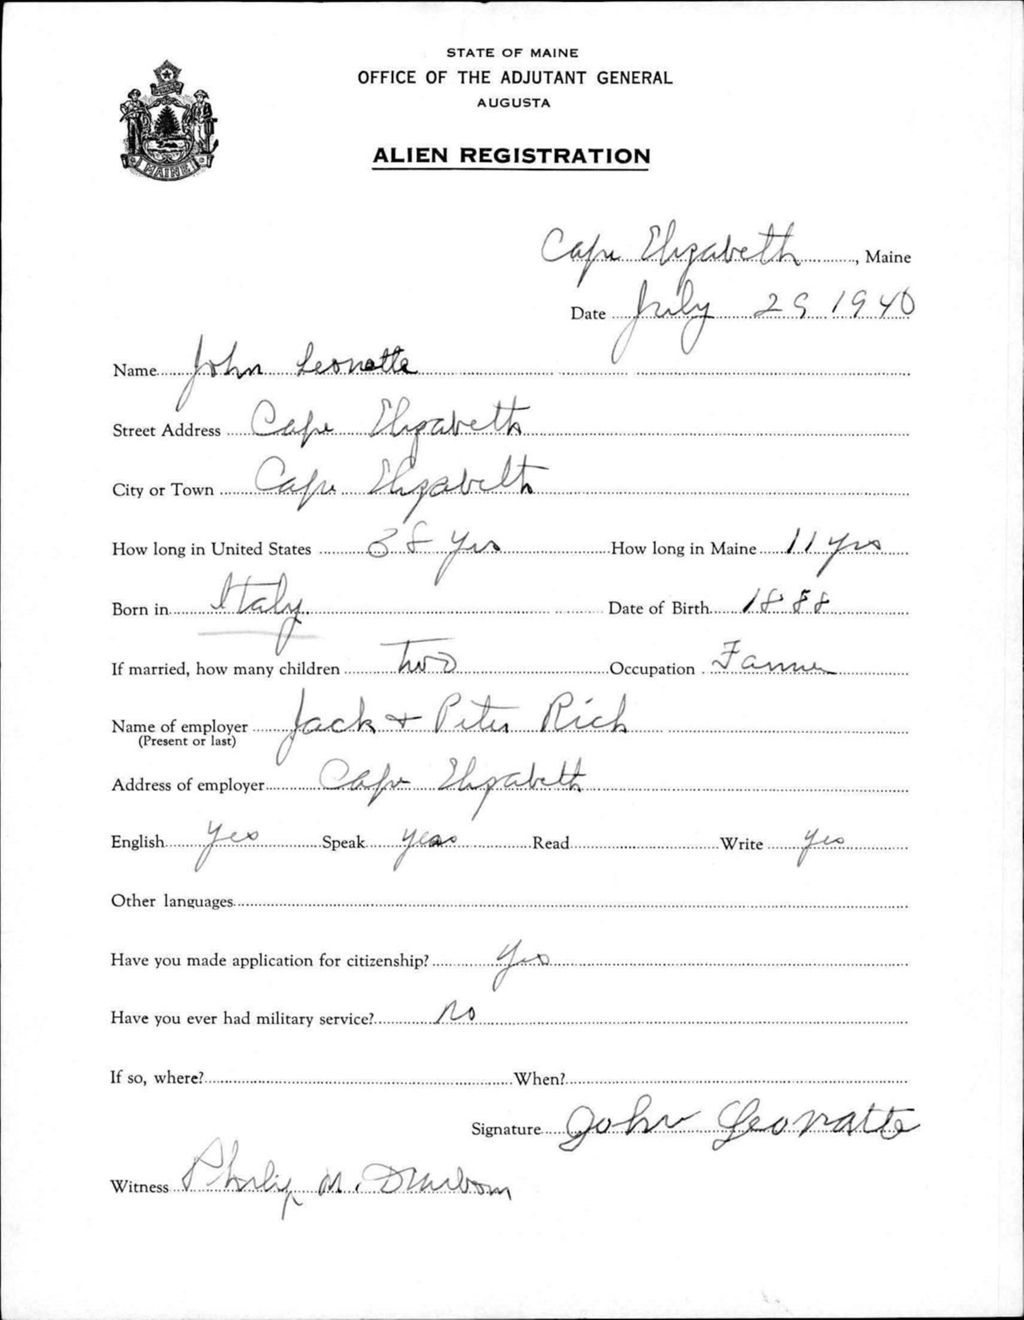 STATE OF MAINE
OFFICE OF THE ADJUTANT GENERAL
AUGUSTA
MAINE
ALIEN REGISTRATION
Cape Elizabeth, Maine
Date July 29 1940
Name John Leonatte
Street Address Cape Elizabeth
City or Town Cape Elizabeth
How long in United States 38 yrs How long in Maine 11 yrs
Born in Italy Date of Birth 1888
If married, how many children Two Occupation Farmer
Name of employer Jack + Peter Rich
(Present or last)
Address of employer Cape Elizabeth
English yes Speak yeas Read Write yes
Other languages
Have you made application for citizenship? yes
Have you ever had military service? no
If so, where? When?
Signature John Leonatte
Witness Philip M.